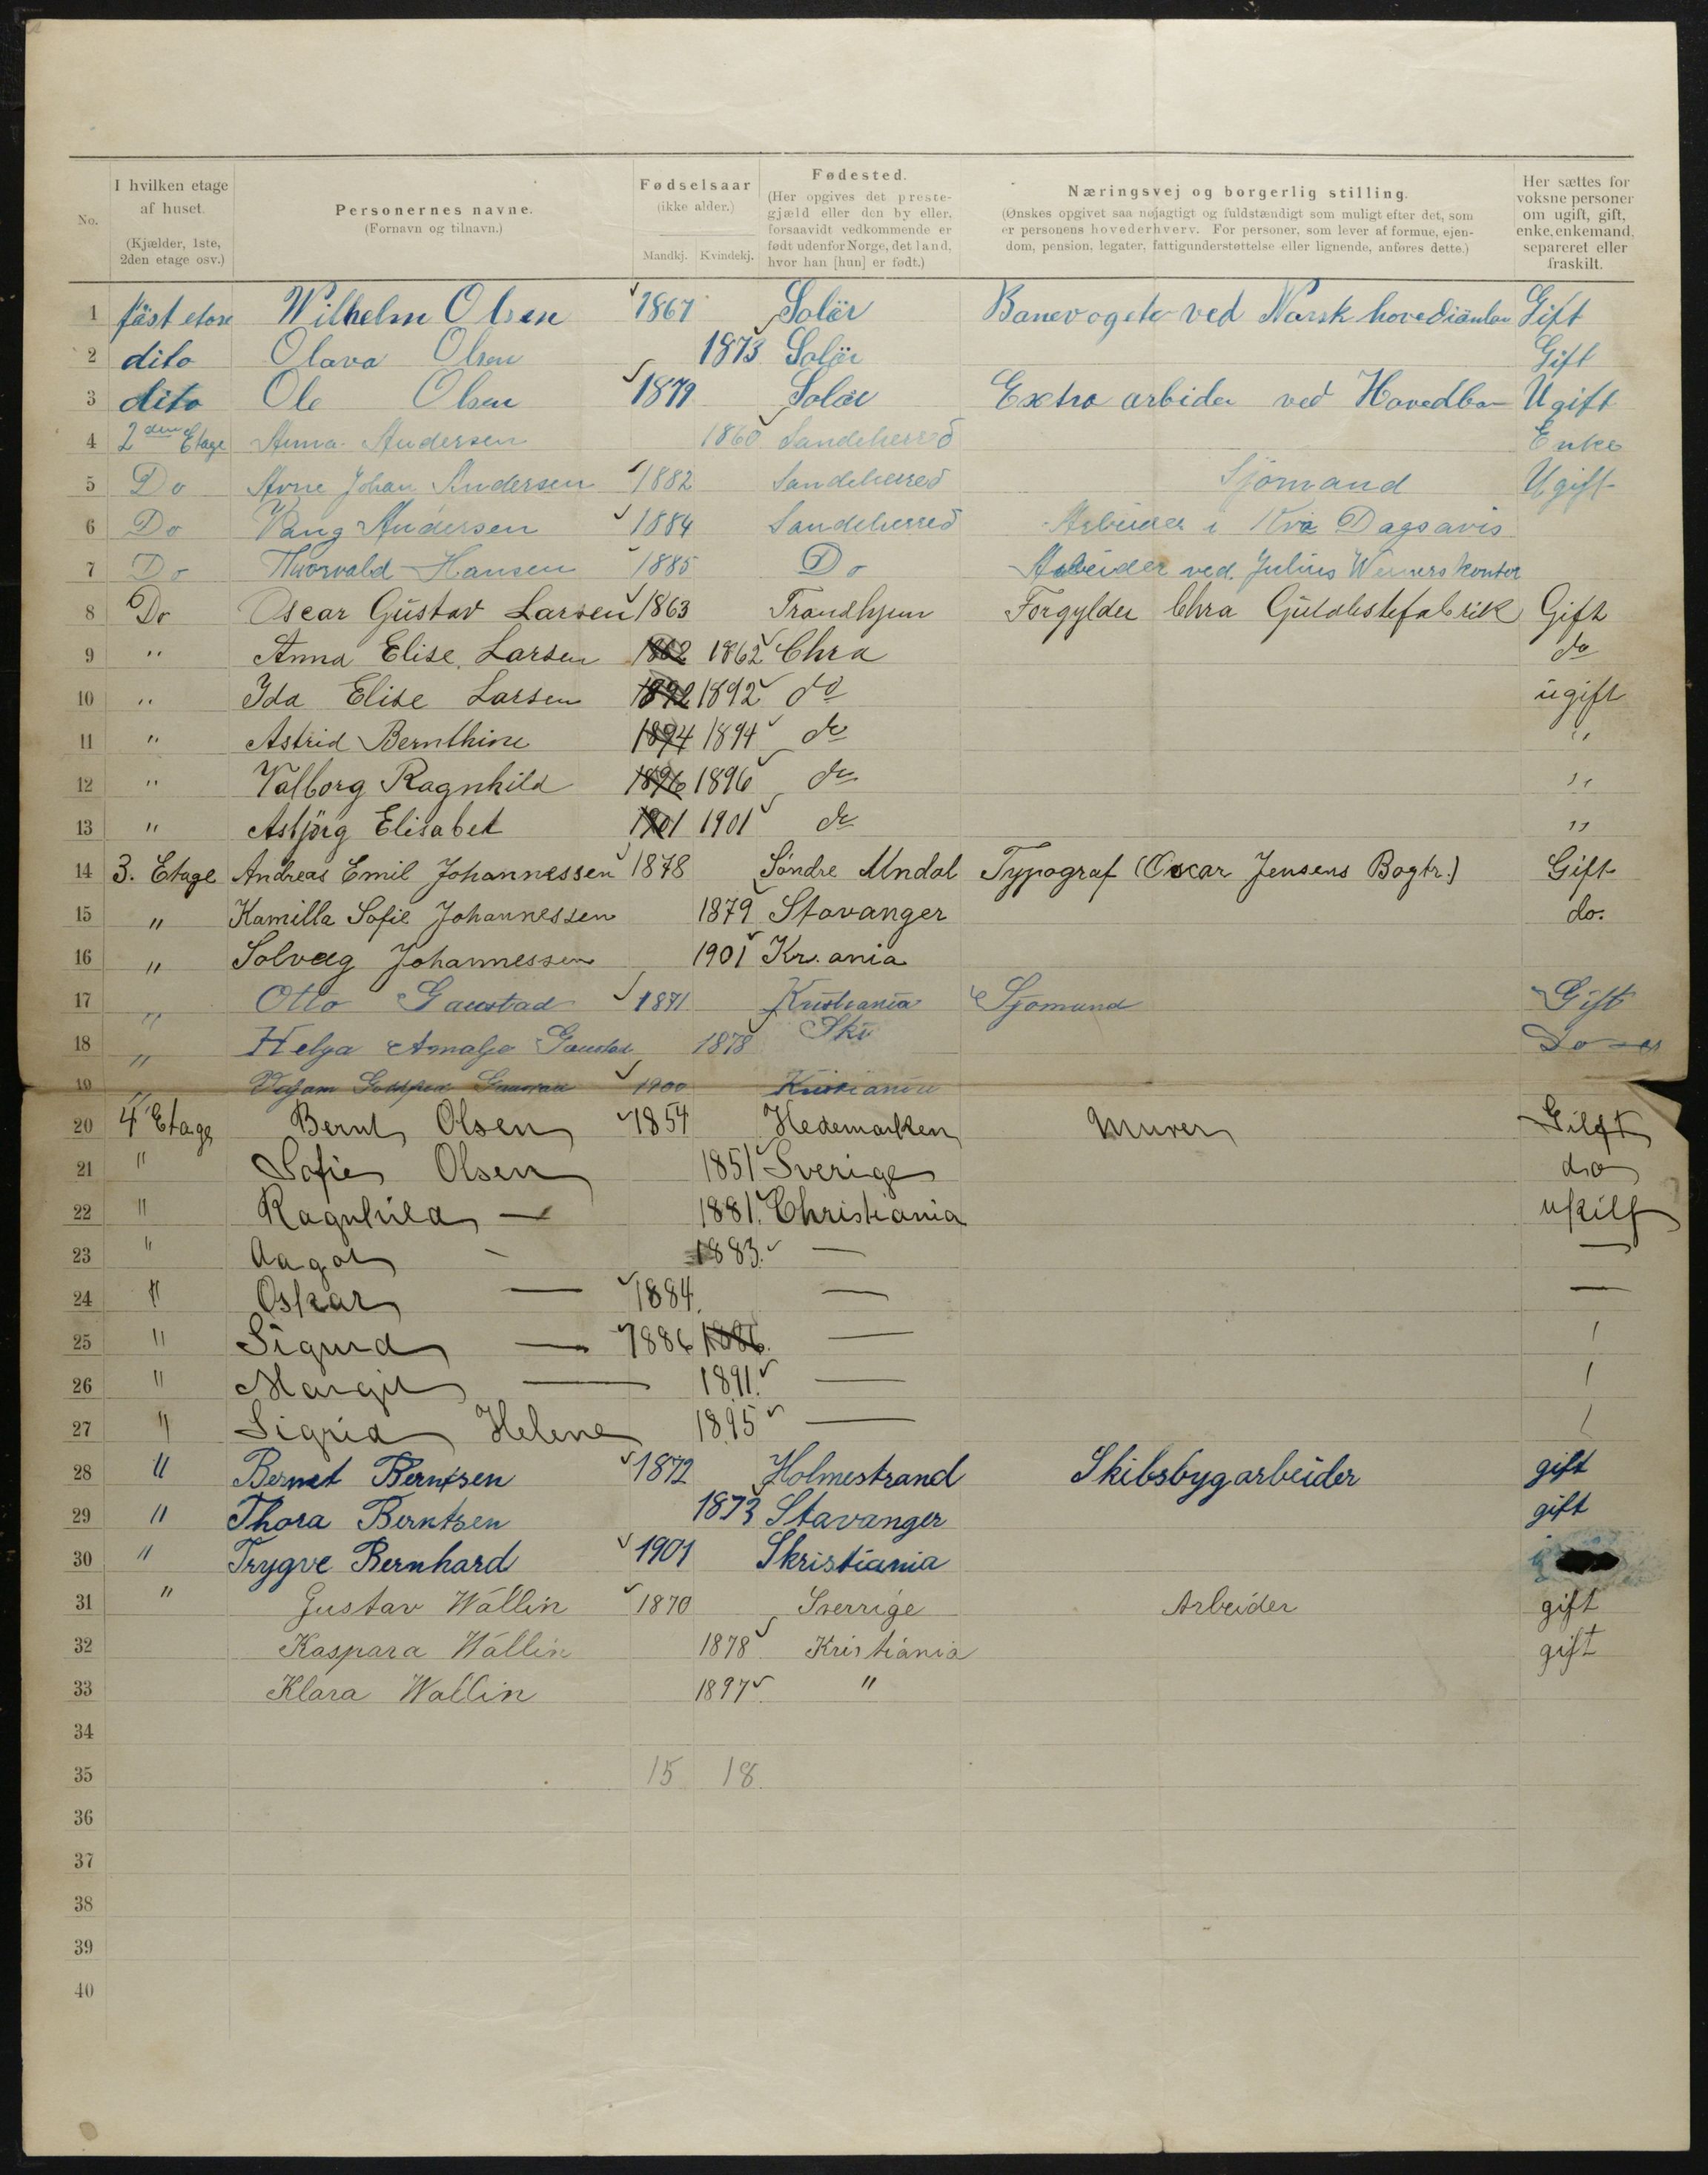 No.
I hvilken etage
af huset.
(Kjælder, 1ste,
2den etage osv.)
Personernes navne.
(Fornavn og tilnavn.)
Fødselsaar
(ikke alder.)
Mandkj. Kvindekj.
Fødested.
(Her opgives det preste-
gjæld eller den by eller,
forsaavidt vedkommende er
født udenfor Norge, det land,
hvor han [hun] er født.)
Næringsvej og borgerlig stilling.
(Ønskes opgivet saa nøjagtigt og fuldstændigt som muligt efter det, som
er personens hovederhverv. For personer, som lever af formue, ejen-
dom, pension, legater, fattigunderstøttelse eller lignende, anføres dette.)
Her sættes for
voksne personer
om ugift, gift,
enke, enkemand,
separeret eller
fraskilt.
1 Wilhelm Olsen 1867 Solör ved Norsk Gift
2 dito Olava Olsen 1873 Solör Gift
3 dito Ole Olsen 1879 Solör Extra arbider ved Hovedba Ugift
4 2den Etage Anna Andersen 1860 Sandeherred Enke
5 Do Arne Johan Andersen 1882 Sandeherred Sjömand Ugift
6 Do Vang Andersen 1884 Sandeherred Arbeider i Kra Dagsavis
7 Do Thorvald Hansen 1885 Do Arbeider ved. Julius Weiners kontor
8 Do Oscar Gustav Larsen 1863 Trondhjem Forgylder Chra Guldlistefabrik Gift
9 " Anna Elise Larsen 1862 1862 Chra do
10 " Ida Elise Larsen 1892 1892 do ugift
11 " Astrid Bernthine 1894 1894 do "
12 " Valborg Ragnhild 1896 1896 do "
13 " Asbjörg Elisabet 1901 1901 do "
14 3. Etage Andreas Emil Johannessen 1878 Söndre Undal Typograf (Oscar Jensens Bogtr.) Gift
15 " Kamilla Sofie Johannessen 1879 Stavanger do.
16 " Solveig Johannessen 1901 Kr.ania
17 " Otto Gaustad 1871 Kristiania Sjömand Gift
18 " Helga Amalje Gaustad 1878 Ski Do
19 " Gaustad 1900 Kristiania
20 4 Etage Bernt Olsen 1854 Hedemarken Murer Gift
21 " Sofie Olsen 1851 Sverige do
22 " Ragnhild — 1881. Christiania
23 " Aagot - 1883. — —
24 " Oskar — 1884. — —
25 " Sigurd — 1886 1886. — /
26 " Margit — 1891. — /
27 " Sigrid Helene 1895 — /
28 " Bernt Berntsen 1872 Holmestrand Skibsbygarbeider gift
29 " Thora Berntsen 1873 Stavanger gift
30 " Trygve Bernhard 1901 Skristiania
31 " Gustav Wallin 1870 Sverrige Arbeider gift
32 Kaspara Wallin 1878 Kristiania gift
33 Klara Wallin 1897 "
34
35 15 18
36
37
38
39
40